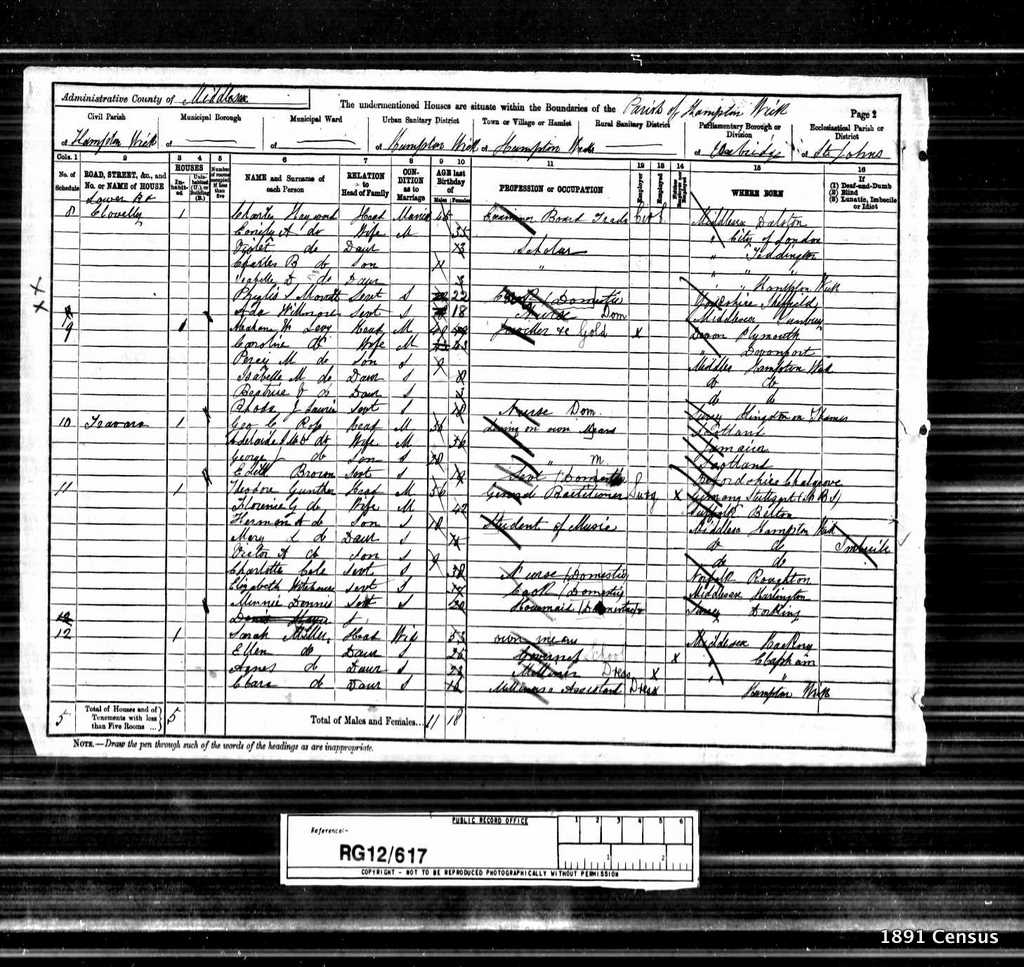 Administrative County of Middlesex
The undermentioned Houses are situate within the Boundaries of the Parish of Hampton Wick
Page 2
Civil Parish
of Hampton Wick
Municipal Borough
of
Municipal Ward
of
Urban Sanitary District
of Hampton Wick
Town or Village or Hamlet
of Hampton Wick
Rural Sanitary District
of
Parliamentary Borough or Division
of Uxbridge
Ecclesiastical Parish or District
of St Johns
Cols. 1 2 3 4 5 6 7 8 9 10 11 12 13 14 15 16
No. of Schedule
ROAD, STREET, &c., and No. or NAME of HOUSE
HOUSES
Inhabited
Uninhabited (U.) or Building (B.)
Number of rooms occupied if less than five
NAME and Surname of each Person
RELATION to Head of Family
CONDITION as to Marriage
AGE last Birthday of
Males Females
PROFESSION or OCCUPATION
Employer
Employed
WHERE BORN
If
(1) Deaf-and-Dumb
(2) Blind
(3) Lunatic, Imbecile or Idiot
8 Clovelly 1 Charles Hayward Head Married 45 Examiner Board Trade Middlesex Dalston
A do Wife M 35 " City of London
Violet do Daur 13 Scholar " Teddington
Charles B do Son 11 " " "
Isabella D do Daur 3 " Hampton Wick
Phyllis S Servt S 22 Domestic Yorkshire
Ada Servt S 18 Nurse Dom Middlesex
9 1 W Levy Head M 49 Jeweller &c Gold x Devon Plymouth
Caroline do Wife M 43 " Devonport
Percy M do Son S 9 Middlesex Hampton Wick
Isabelle M do Daur S 8 do do
Beatrice J do Daur S 5 do do
Rhoda J Servt S 18 Nurse Dom. Surrey Kingston on Thames
10 1 Geo C Ross Head M 56 Living on own Means Scotland
Adelaide do Wife M 56 Jamaica
George J do Son S 28 " M Scotland
Edith Brown Servt S 19 Servt (Domestic) Bedfordshire Chalgrave
11 1 Theodore Gunther Head M 56 General Practitioner Surg x Germany Stuttgart (N B S)
Florence G do Wife M 42 Suffolk Belton
Herman A do Son S 18 Student of Music Middlesex Hampton Wick
Mary L do Daur S 15 do do Imbecile
Victor A do Son S 9 do do
Charlotte Cole Servt S 38 Nurse (Domestic) Norfolk Roughton
Elizabeth Servt S Cook (Domestic) Middlesex Harlington
Minnie Dennis Servt S 20 Housemaid (Domestic) Surrey Dorking
12 1 Sarah Miller Head Wid 53 own means Middlesex Hackney
Ellen do Daur S 25 Governess School x " Clapham
Agnes do Daur S 23 Milliner Dress x " "
Clara do Daur S 16 Milliners Assistant Dress x Hampton Wick
5 Total of Houses and of Tenements with less than Five Rooms ... 5 Total of Males and Females... 11 18
NOTE.—Draw the pen through such of the words of the headings as are inappropriate.
PUBLIC RECORD OFFICE
Reference:-
1 2 3 4 5 6
RG12/617
1 2
COPYRIGHT - NOT TO BE REPRODUCED PHOTOGRAPHICALLY WITHOUT PERMISSION
1891 Census